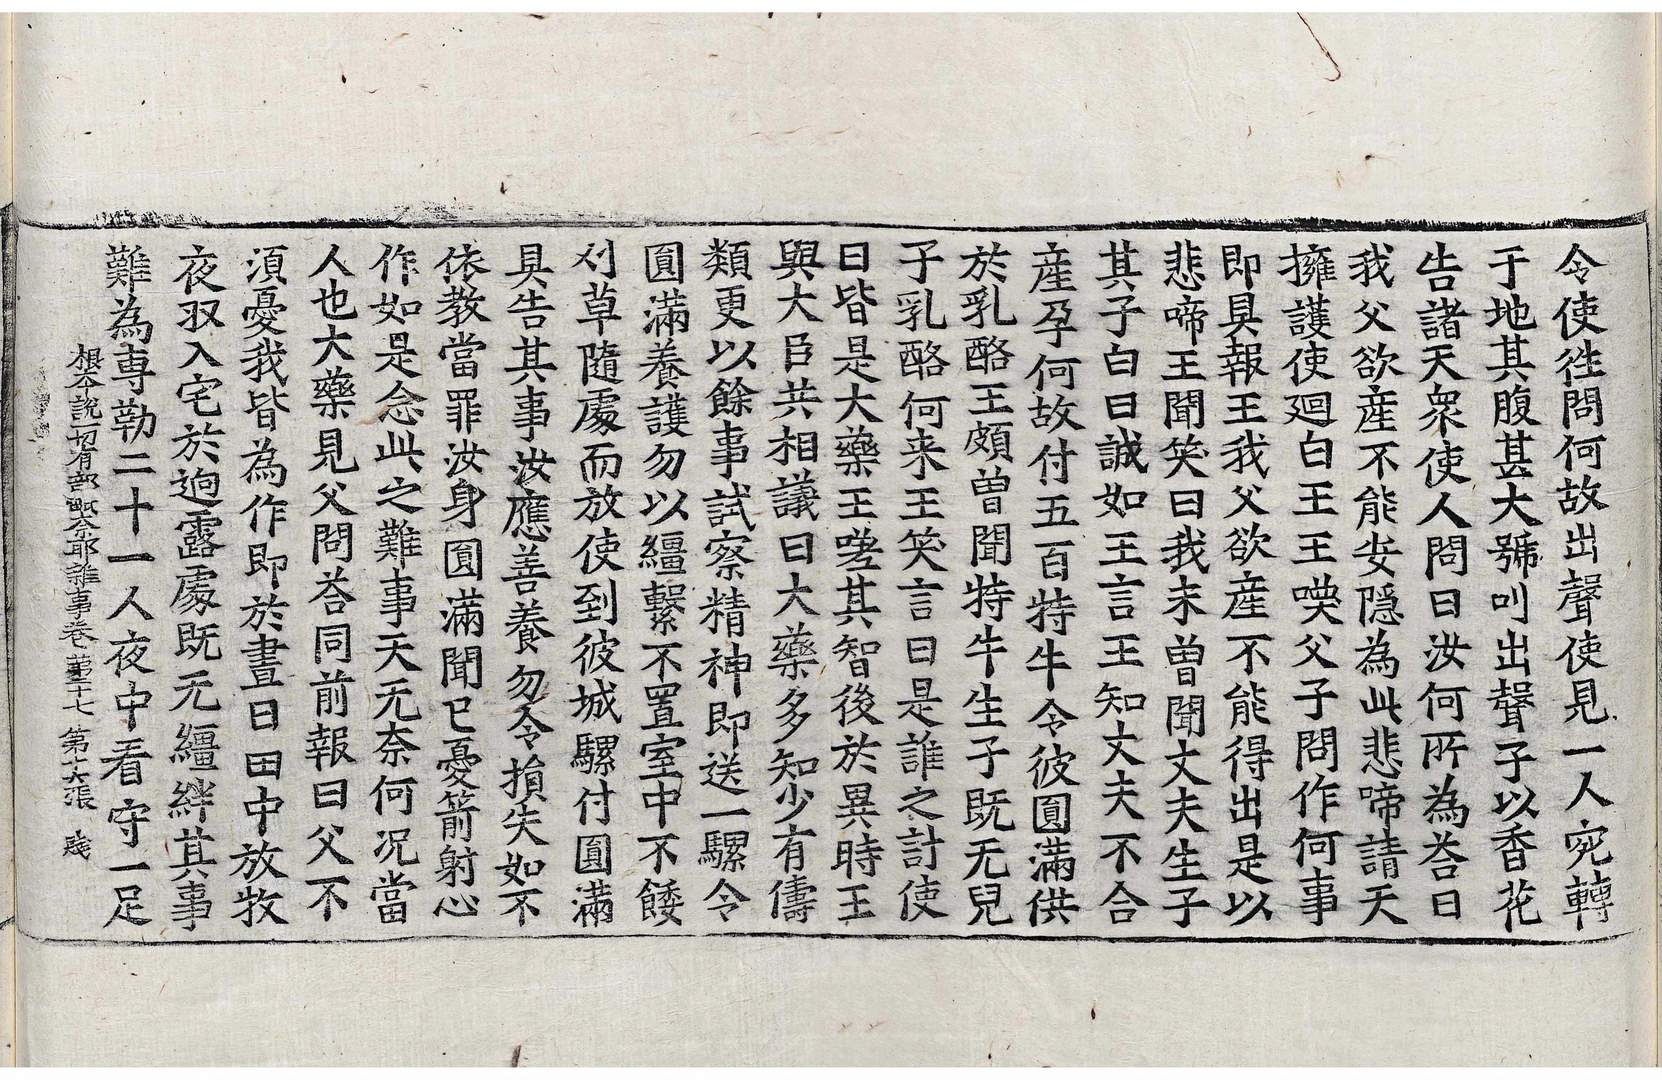 令使徃問何故出聲使見一人宛轉
于地其腹甚大號叫出聲子以香花
告諸天衆使人問曰汝何所為荅曰
我父欲産不能安隱為此悲啼請天
擁護使廻白王王喚父子問作何事
即具報王我父欲産不能得出是以
悲啼王聞笑曰我未曾聞丈夫生子
其子白曰誠如王言王知丈夫不合
産孕何故付五百特牛令彼圓滿供
於乳酪王頗曾聞特牛生子既无兒
子乳酪何来王笑言曰是誰之計使
曰皆是大藥王嗟其智後於異時王
與大臣共相議曰大藥多知少有儔
類更以餘事試察精神即送一騾令
圓滿養護勿以繮繫不置室中不餧
刈草隨處而放使到彼城騾付圓滿
具告其事汝應善養勿令損失如不
依教當罪汝身圓滿聞已憂箭射心
作如是念此之難事天无奈何况當
人也大藥見父問荅同前報曰父不
須憂我皆為作即於晝日田中放牧
夜収入宅於逈露處既无繮絆其事
難為専勒二十一人夜中看守一足
根本說一切有部毗奈耶雜事卷苐二十七 第十六張